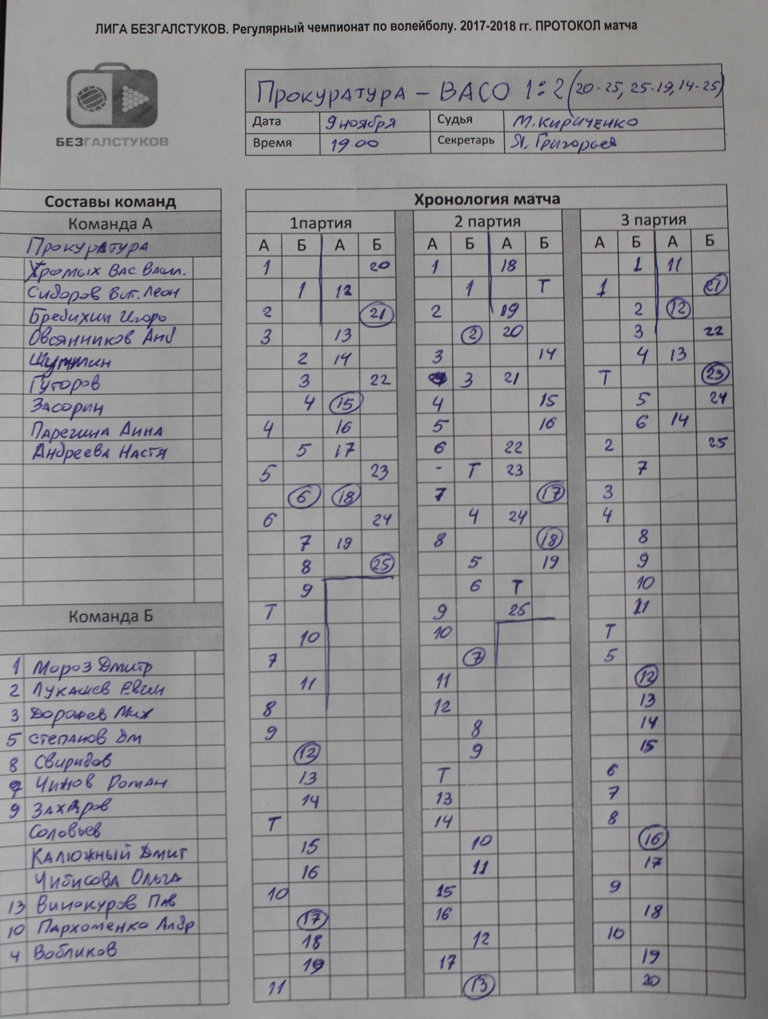 ЛИГА БЕЗГАЛСТУКОВ. Регулярный чемпионат по волейболу. 2017-2018 гг. ПРОТОКОЛ матча
БЕЗГАЛСТУКОВ
Прокуратура – ВАСО 1:2 (20-25, 25-19, 14-25)
Дата 9 ноября Судья М. Кириченко
Время 19.00 Секретарь Я. Григорьев
Составы команд
Команда А
Прокуратура
Хромых Вас Васил.
Сидоров Вит. Леон
Бредихин Игорь
Овсянников Анд
Шутилин
Гуторов
Засорин
Парегина Анна
Андреева Настя
Команда Б
1 Мороз Дмитр
2 Лукашев Евген
3 Доронев Мих
5 Степанов Дм
8 Свиридов
7 Чижов Роман
9 Захаров
Соловьев
Калюжный Дмит
Чибисова Ольга
13 Винокуров Пав
10 Пархоменко Алдр
4 Вобликов
Хронология матча
1партия 2 партия 3 партия
А Б А Б А Б А Б А Б А Б
1 20 1 18 1 11
1 12 1 Т 1 21
2 21 2 19 2 12
3 13 2 20 3 22
2 14 3 14 4 13
3 22 3 21 Т 23
4 15 4 15 5 24
4 16 5 16 6 14
5 17 6 22 2 25
5 23 - Т 23 7
6 18 7 17 3
6 24 4 24 4
7 19 8 18 8
8 25 5 19 9
9 6 Т 10
Т 9 25 11
10 10 Т
7 7 5
11 11 12
8 12 13
9 8 14
12 9 15
13 Т 6
14 13 7
Т 14 8
15 10 16
16 11 17
10 15 9
17 16 18
18 12 10
19 17 19
11 13 20